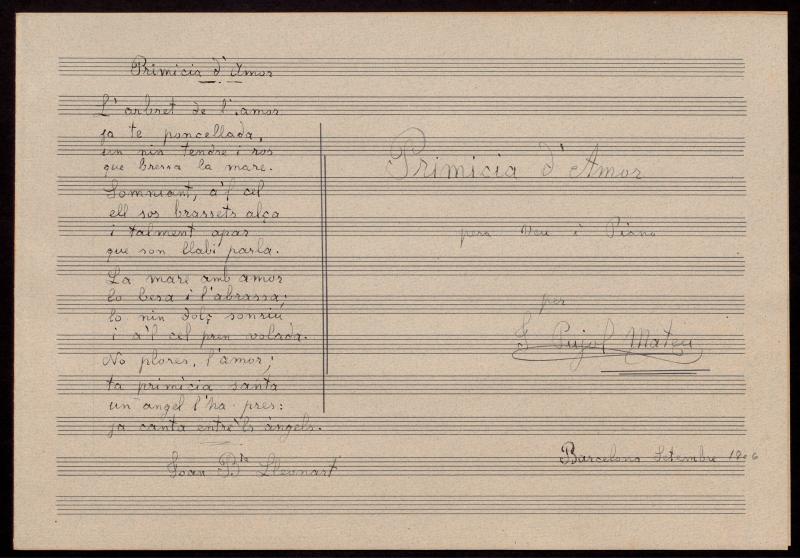 Primicia d'Amor
L'arbret de l'amor
ja te poncellada,
un nin tendre i ros
que bressa la mare.
Somniant, a'l cel
ell sos brassets alça
i talment apar
que son llabi parla.
La mare amb amor
lo besa i l'abrassa;
lo nin dolç sonriu
i a'l cel pren volada.
No plores, l'amor;
ta primicia santa
un angel l'ha pres:
ja canta entre'ls àngels.
Joan Bta Lleonart
Primicia d'Amor
pera Veu i Piano
per
F Pujol Mateu
Barcelona Setembre 1906